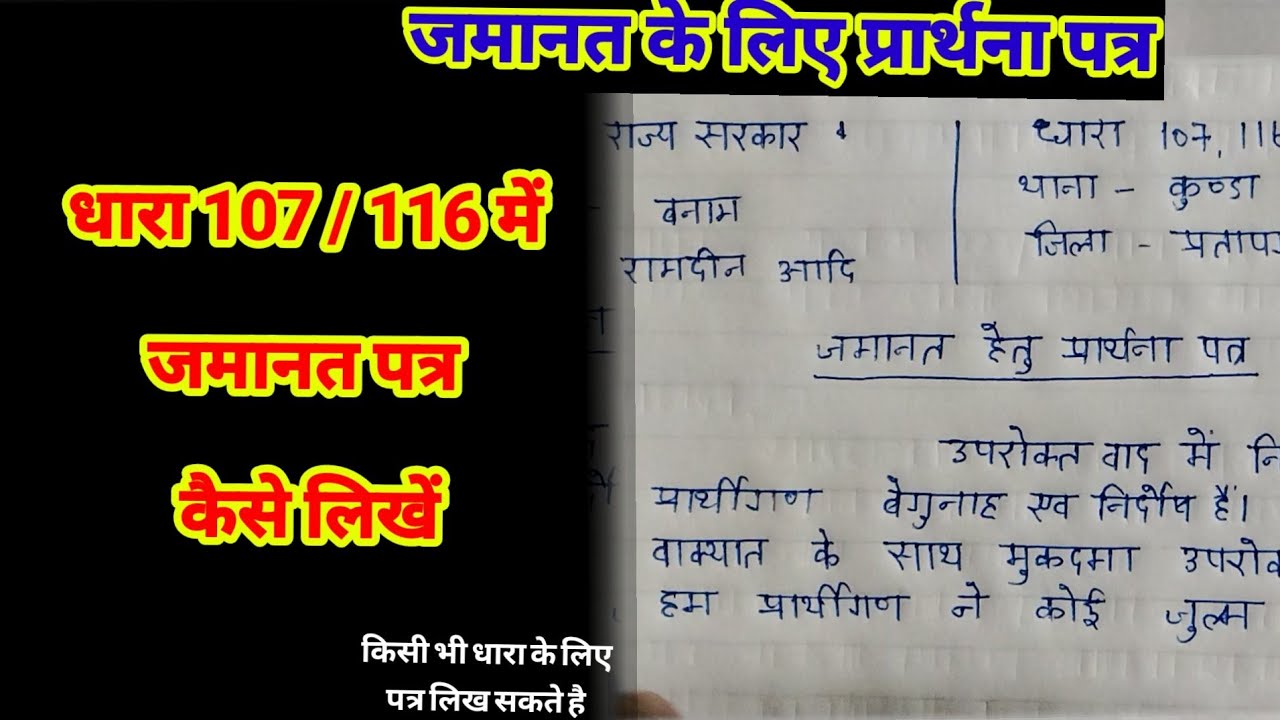 जमानत के लिए प्रार्थना पत्र
धारा 107 / 116 में
जमानत पत्र
कैसे लिखें
किसी भी धारा के लिए
पत्र लिख सकते है
राज्य सरकार
बनाम
रामदीन आदि
धारा 107, 116
थाना - कुण्डा
जिला -
जमानत हेतु प्रार्थना पत्र
उपरोक्त वाद में
प्रार्थीगण बेगुनाह एव निर्दोष हैं।
वाक्यात के साथ मुकदमा
हम प्रार्थीगण ने कोई जुल्म